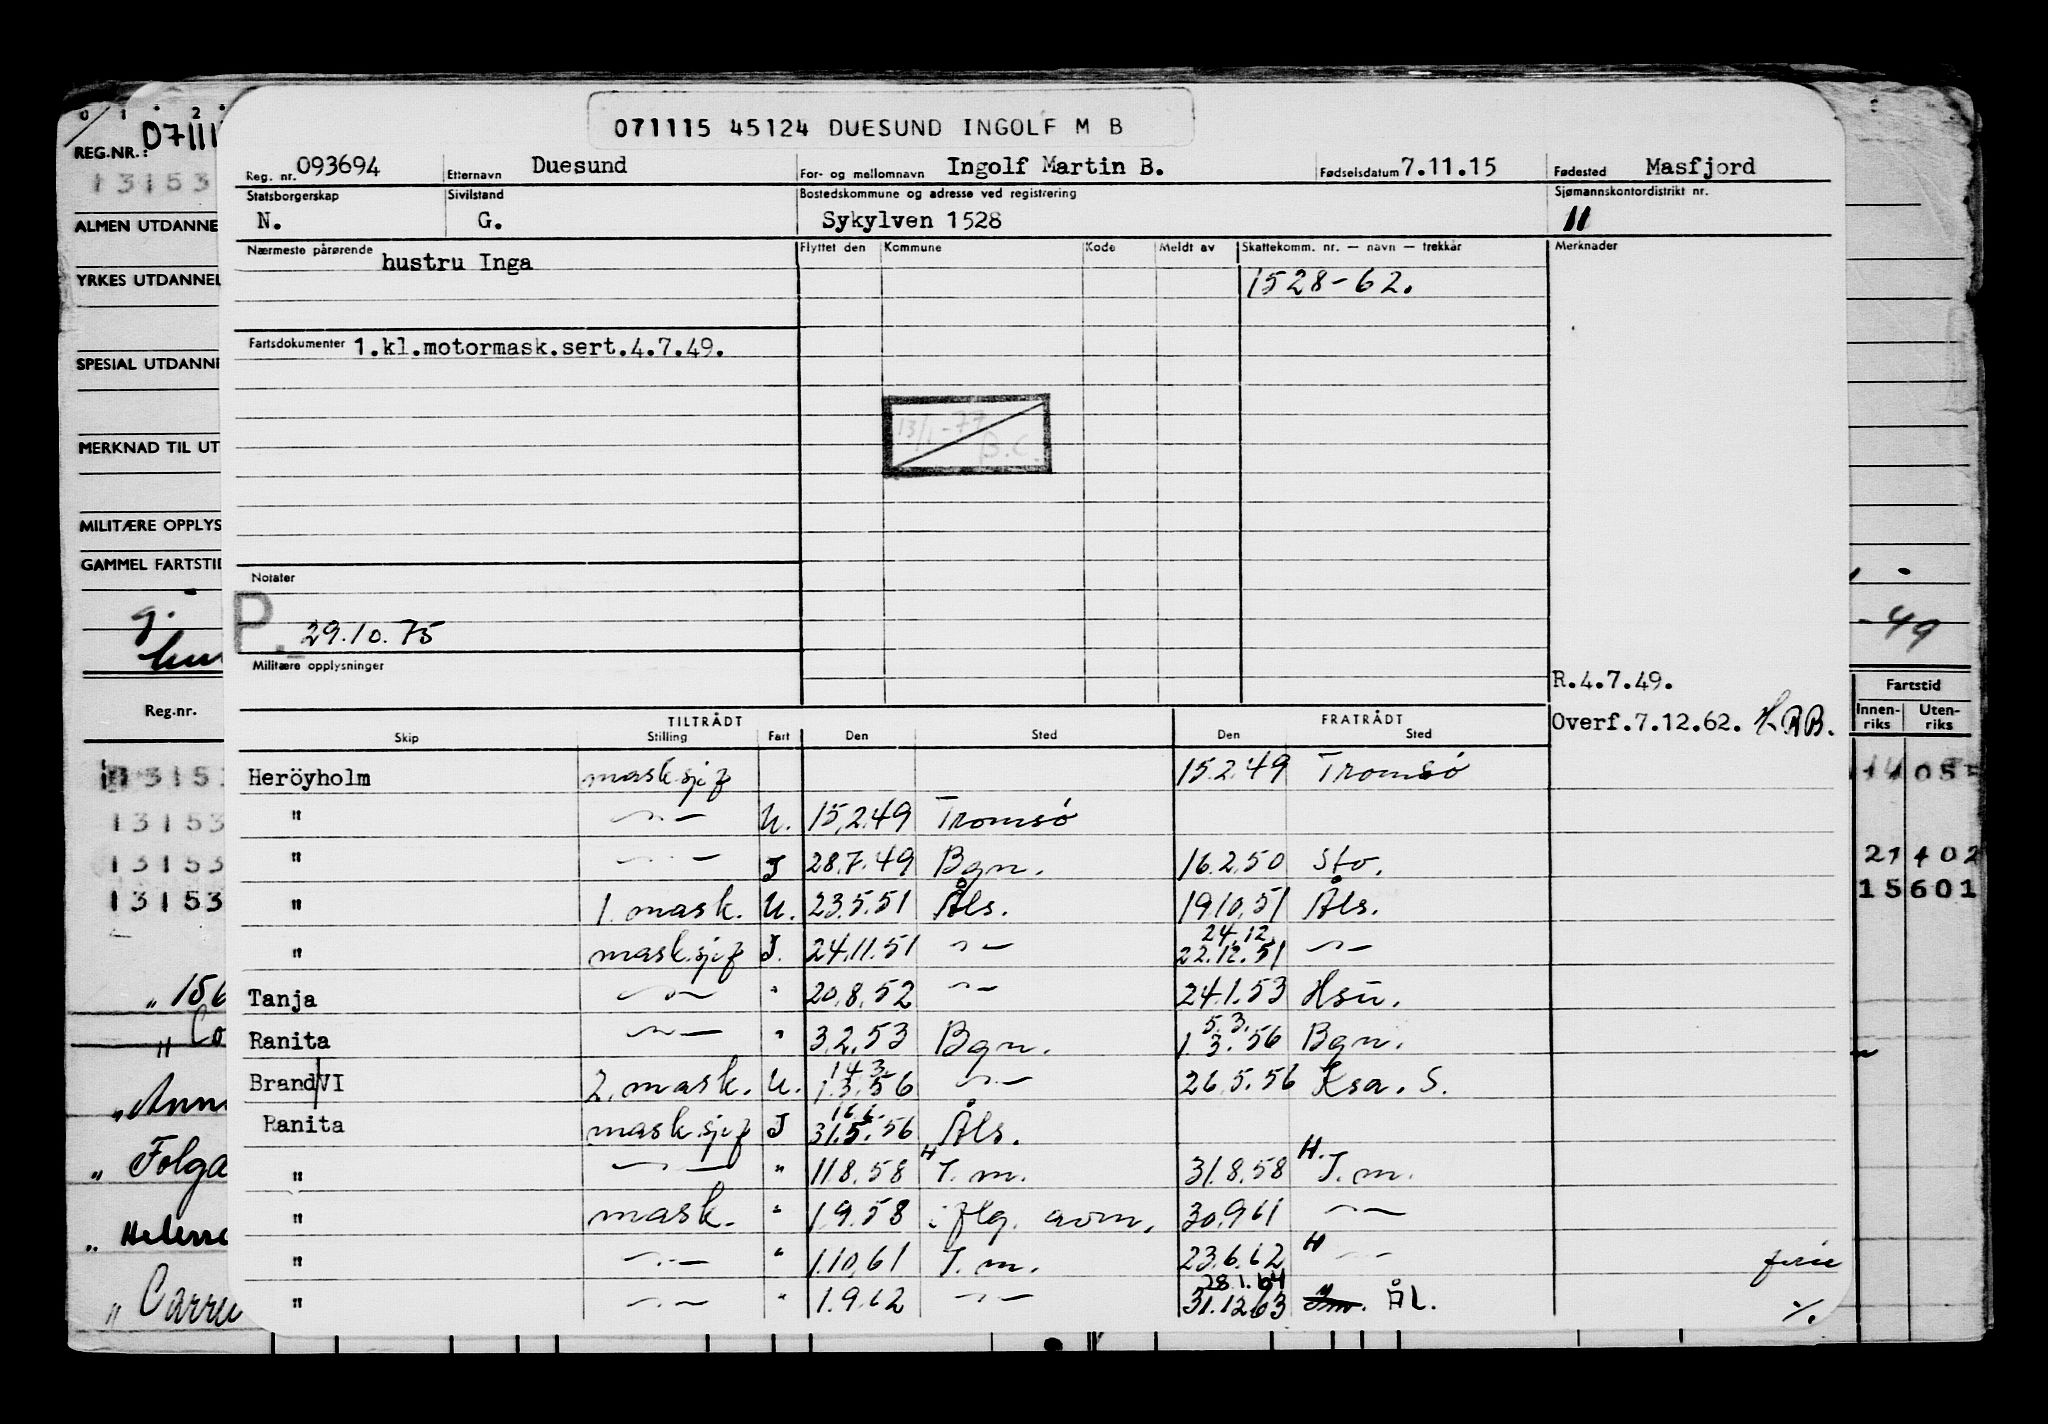 071115 45124 DUESUND INGOLF M B
Reg. nr. 093694 Etternavn Duesund For- og mellomnavn Ingolf Martin B. Fødselsdatum 7.11.15 Fødested Masfjord
Statsborgerskap Sivilstand Bostedskommune og adresse ved registrering Sjømannskontordistrikt nr.
N. G. Sykylven 1528 11
Nærmeste pårørende hustru Inga Flyttet den Kommune Kode Meldt av Skattekomm. nr. — navn — trekkår Merknader
1528-62.
Fartsdokumenter 1.kl.motormask.sert.4.7.49.
13/1-77
B.C.
Notater
P. 29.10.75
Militære opplysninger
R.4.7.49.
Overf.7.12.62.
TILTRÅDT FRATRÅDT
Skip Stilling Fart Den Sted Den Sted
Heröyholm mask.sjef 15.2.49 Tromsø
" -"- U. 15.2.49 Tromsø
" -"- J 28.7.49 Bgn. 16.2.50 Sto.
" 1. mask. U. 23.5.51 Åls. 19.10.51 Åls.
24.12.
" mask.sjef J. 24.11.51 -"- 22.12.51 -"-
Tanja -"- " 20.8.52 -"- 24.1.53 Hsu.
5.3.
Ranita -"- " 3.2.53 Bgn. 1.3.56 Bgn.
14.3.
Brand VI 2. mask. U. 1.3.56 -"- 26.5.56 Ksa. S.
16.6.
Ranita mask.sjef J 31.5.56 Åls.
" -"- " 11.8.58 H J.m. 31.8.58 H. J.m.
" mask. " 1.9.58 iflg. aom. 30.9.61 -"-
" -"- " 1.10.61 J.m. 23.6.62 H -"- ferie
28.1.64
" -"- " 1.9.62 -"- 31.12.63 Ål. ./.
0 1 2
REG.NR.: 07111
13153
ALMEN UTDANNE
YRKES UTDANNEL
SPESIAL UTDANNE
MERKNAD TIL UT
MILITÆRE OPPLYS
GAMMEL FARTSTID
g.
Reg.nr.
13153
13153
13153
" 156
" Co
" Ann
" Folga
" Helen
" Carr
-49
Fartstid
Innenriks Utenriks
21402
15601